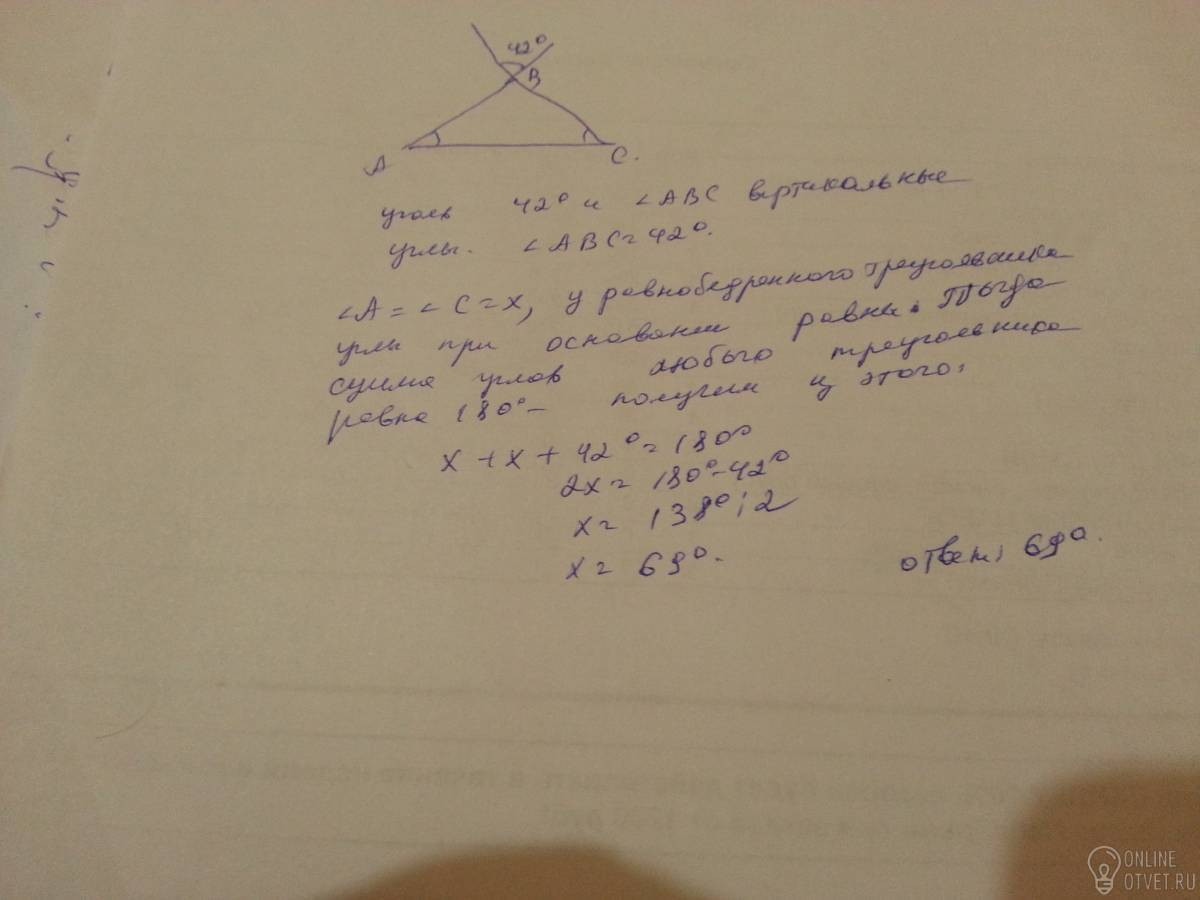 42°
B
A
C.
углы 42° и ∠ABC вертикальные
углы. ∠ABC=42°.
∠A=∠C=x, у равнобедренного треугольника
углы при основании равны. Тогда
сумма углов любого треугольника
равна 180°- получим из этого:
x+x+42°=180°
2x=180°-42°
x=138°:2
x=69°.
ответ: 69°.
ONLINE
OTVET.RU